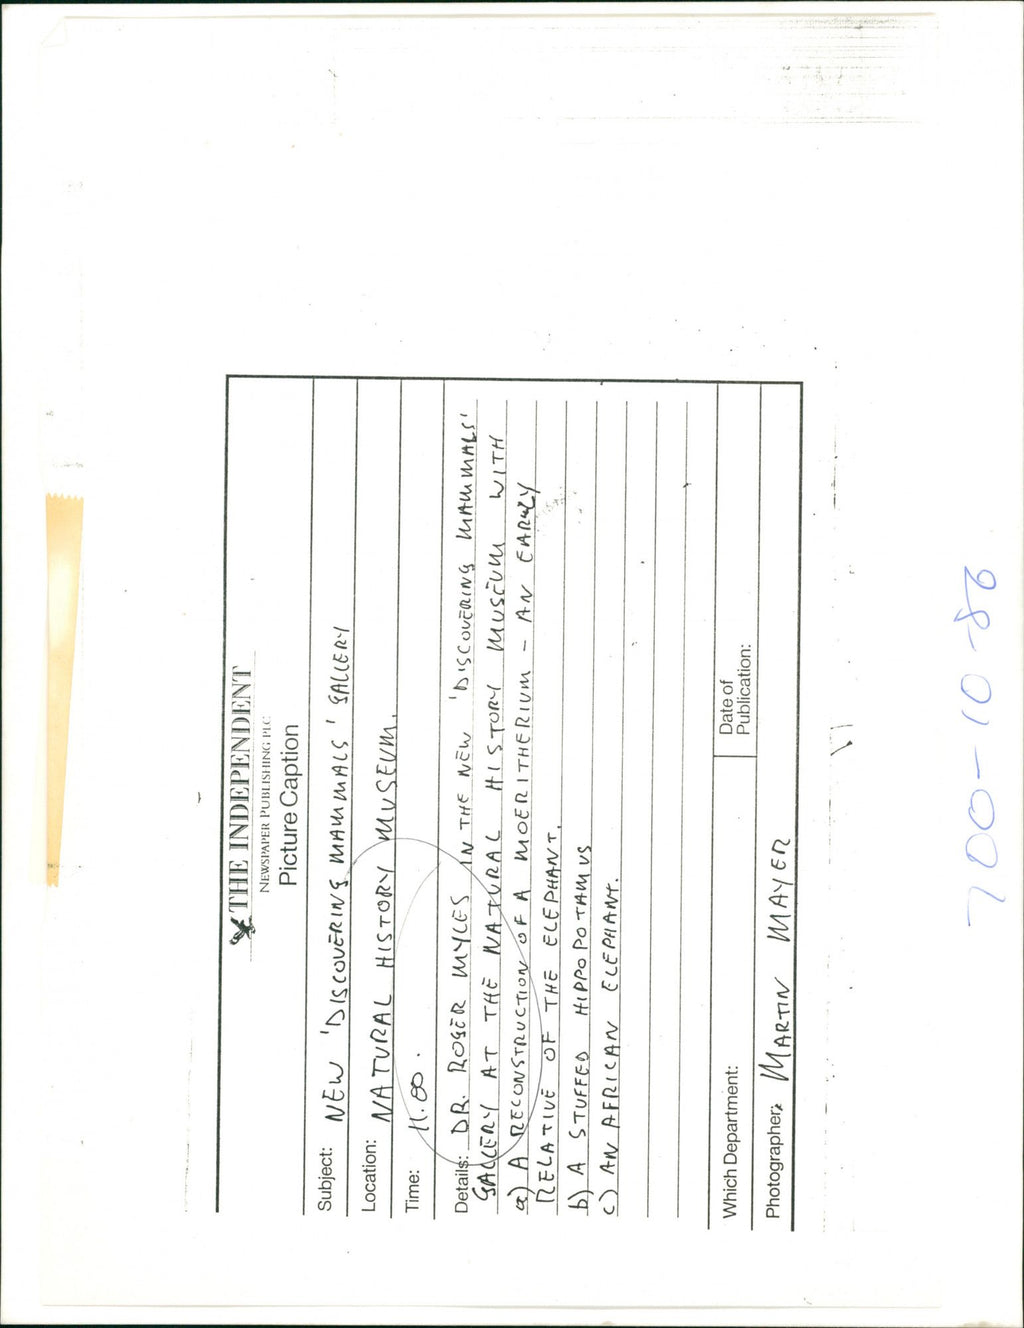 THE INDEPENDENT
NEWSPAPER PUBLISHING PLC
Picture Caption
Subject: NEW 'DISCOVERING MAMMALS' GALLERY
Location: NATURAL HISTORY MUSEUM.
Time: 11.00.
Details: DR. ROGER MYLES IN THE NEW 'DISCOVERING MAMMALS'
GALLERY AT THE NATURAL HISTORY MUSEUM WITH
a) A RECONSTRUCTION OF A MOERITHERIUM - AN EARLY
RELATIVE OF THE ELEPHANT.
b) A STUFFED HIPPOPOTAMUS
c) AN AFRICAN ELEPHANT.
Which Department:
Date of
Publication:
Photographer: MARTIN MAYER
700-10-86